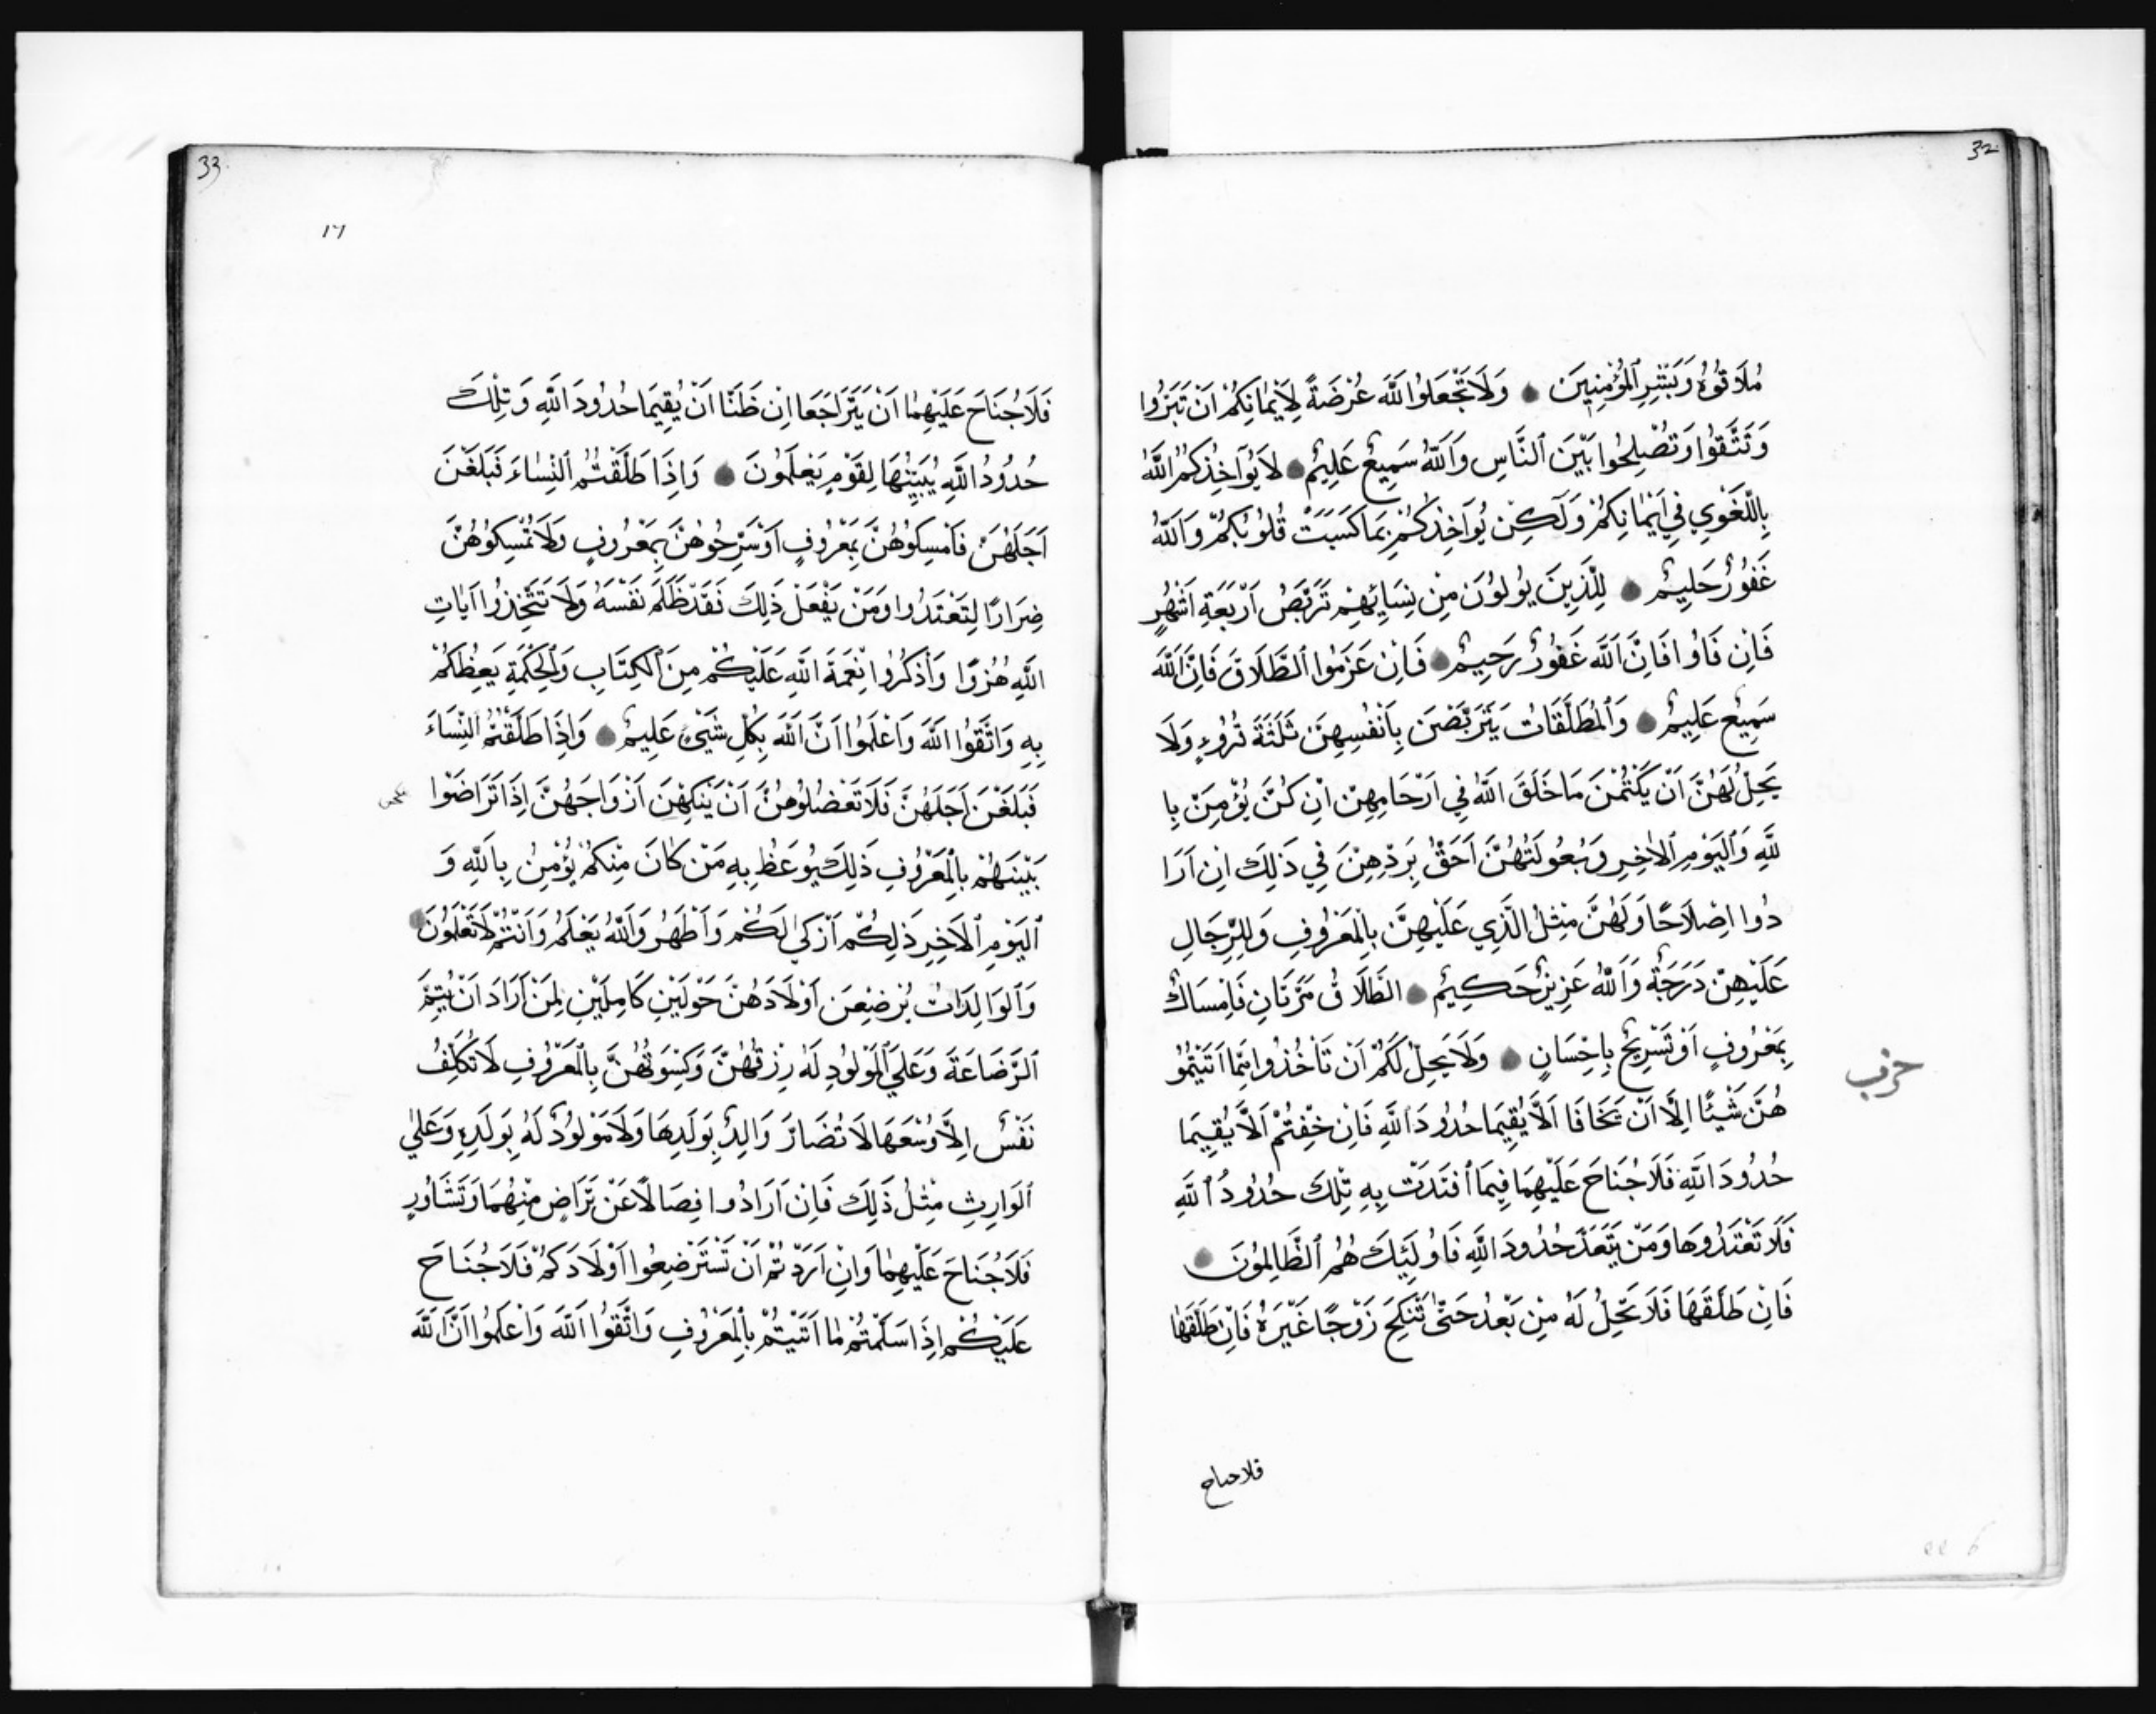 32
مُلَاقُوهُ وَبَشِّرِ ٱلْمُؤْمِنِينَ وَلَا تَجْعَلُوا اللَّهَ عُرْضَةً لِأَيْمَانِكُمْ اَنْ تَبَرُّوا
وَتَتَّقُوا وَتُصْلِحُوا بَيْنَ ٱلنَّاسِ وَاَللَّهُ سَمِيعٌ عَلِيمٌ لَا يُوَآخِذُكُمُ اللَّهُ
بِاللَّغْوِي فِي اَيْمَانِكُمْ وَلَكِنْ يُوَآخِذُكُمْ بِمَا كَسَبَتْ قُلُوبُكُمْ وَاَللَّهُ
غَفُورٌ حَلِيمٌ لِلَّذِينَ يُولُونَ مِنْ نِسَائِهِمْ تَرَبُّصُ اَرْبَعَةِ اَشْهُرٍ
فَاِنْ فَاوُا فَاِنَّ اَللَّهَ غَفُورٌ رَحِيمٌ فَاِنْ عَزَمُوا ٱلطَّلَاقَ فَاِنَّ اَللَّهَ
سَمِيعٌ عَلِيمٌ وَٱلْمُطَلَّقَاتُ يَتَرَبَّصْنَ بِاَنْفُسِهِنَّ ثَلَثَةَ قُرُوءٍ وَلَا
يَحِلُّ لَهُنَّ اَنْ يَكْتُمْنَ مَا خَلَقَ اللَّهُ فِي اَرْحَامِهِنَّ اِنْ كُنَّ يُؤْمِنَّ بِا
للَّهِ وَٱلْيَوْمِ ٱلاَخِرِ وَبُعُولَتُهُنَّ اَحَقُّ بِرَدِّهِنَّ فِي ذَلِكَ اِنْ اَرَا
دُوا اِصْلَاحًا وَلَهُنَّ مِثْلُ الَّذِي عَلَيْهِنَّ بِالْمَعْرُوفِ وَلِلرِّجَالِ
عَلَيْهِنَّ دَرَجَةٌ وَاَللَّهُ عَزِيزٌ حَكِيمٌ الطَّلَاقُ مَرَّتَانِ فَاِمْسَاكٌ
بِمَعْرُوفٍ اَوْ تَسْرِيحٌ بِاِحْسَانٍ وَلَا يَحِلُّ لَكُمْ اَنْ تَاْخُذُوا مِمَّا اَتَيْتُمُو
حزب
هُنَّ شَيْئًا اِلَّا اَنْ يَخَافَا اَلَّا يُقِيمَا حُدُودَ اَللَّهِ فَاِنْ خِفْتُمْ اَلَّا يُقِيمَا
حُدُودَ اَللَّهِ فَلَا جُنَاحَ عَلَيْهِمَا فِيمَا ٱفْتَدَتْ بِهِ تِلْكَ حُدُودُ ٱللَّهِ
فَلَا تَعْتَدُوهَا وَمَنْ يَتَعَدَّ حُدُودَ اَللَّهِ فَاُولَئِكَ هُمُ ٱلظَّالِمُونَ
فَاِنْ طَلَّقَهَا فَلَا تَحِلُّ لَهُ مِنْ بَعْدُ حَتَّى تَنْكِحَ زَوْجًا غَيْرَهُ فَاِنْ طَلَّقَهَا
فلاجناح
33
١٦
فَلَا جُنَاحَ عَلَيْهِمَا اَنْ يَتَرَاجَعَا اِنْ ظَنَّا اَنْ يُقِيمَا حُدُودَ اَللَّهِ وَتِلْكَ
حُدُودُ اَللَّهِ يُبَيِّنُهَا لِقَوْمٍ يَعْلَمُونَ وَاِذَا طَلَّقْتُمُ ٱلنِّسَاءَ فَبَلَغْنَ
اَجَلَهُنَّ فَاَمْسِكُوهُنَّ بِمَعْرُوفٍ اَوْ سَرِّحُوهُنَّ بِمَعْرُوفٍ وَلَا تُمْسِكُوهُنَّ
ضِرَارًا لِتَعْتَدُوا وَمَنْ يَفْعَلْ ذَلِكَ فَقَدْ ظَلَمَ نَفْسَهُ وَلَا تَتَّخِذُوا اَيَاتِ
اللَّهِ هُزُوًا وَاَذْكُرُوا نِعْمَةَ اَللَّهِ عَلَيْكُمْ مِنَ ٱلْكِتَابِ وَٱلْحِكْمَةِ يَعِظُكُمْ
بِهِ وَاتَّقُوا اَللَّهَ وَاَعْلَمُوا اَنَّ اَللَّهَ بِكُلِّ شَيْئٍ عَلِيمٌ وَاِذَا طَلَّقْتُمُ النِّسَاءَ
فَبَلَغْنَ اَجَلَهُنَّ فَلَا تَعْضُلُوهُنَّ اَنْ يَنْكِحْنَ اَزْوَاجَهُنَّ اِذَا تَرَاضَوْا
بَيْنَهُمْ بِالْمَعْرُوفِ ذَلِكَ يُوعَظُ بِهِ مَنْ كَانَ مِنْكُمْ يُؤْمِنُ بِاَللَّهِ وَ
ٱلْيَوْمِ ٱلاَخِرِ ذَلِكُمْ اَزْكَى لَكُمْ وَاَطْهَرُ وَاَللَّهُ يَعْلَمُ وَاَنْتُمْ لَا تَعْلَمُونَ
وَٱلوَالِدَاتُ يُرْضِعْنَ اَوْلَادَهُنَّ حَوْلَيْنِ كَامِلَيْنِ لِمَنْ اَرَادَ اَنْ يُتِمَّ
ٱلرَّضَاعَةَ وَعَلَي ٱلْمَوْلُودِ لَهُ رِزْقُهُنَّ وَكِسْوَتُهُنَّ بِالْمَعْرُوفِ لَا تُكَلَّفُ
نَفْسٌ اِلَّا وُسْعَهَا لَا تُضَارَّ وَالِدٌ بِوَلَدِهَا وَلَا مَوْلُودٌ لَهُ بِوَلَدِهِ وَعَلَي
ٱلوَارِثِ مِثْلُ ذَلِكَ فَاِنْ اَرَادُوا فِصَالًا عَنْ تَرَاضٍ مِنْهُمَا وَتَشَاوُرٍ
فَلَا جُنَاحَ عَلَيْهِمَا وَاِنْ اَرَدْتُمْ اَنْ تَسْتَرْضِعُوا اَوْلَادَكُمْ فَلَا جُنَاحَ
عَلَيْكُمْ اِذَا سَلَّمْتُمْ مَا اَتَيْتُمْ بِالْمَعْرُوفِ وَاتَّقُوا اَللَّهَ وَاَعْلَمُوا اَنَّ اَللَّهَ